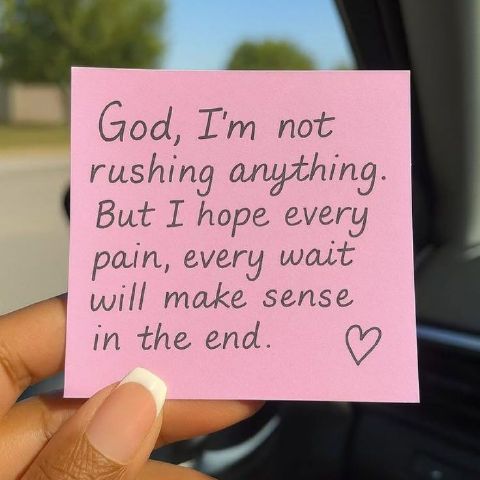 God, I'm not
rushing anything.
But I hope every
pain, every wait
will make sense
in the end.